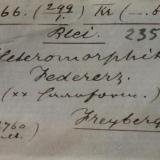 66. (299/1.) Kr (-.
Blei 235
Heteromorphit
Federerz.
(xx
Freyberg
1760